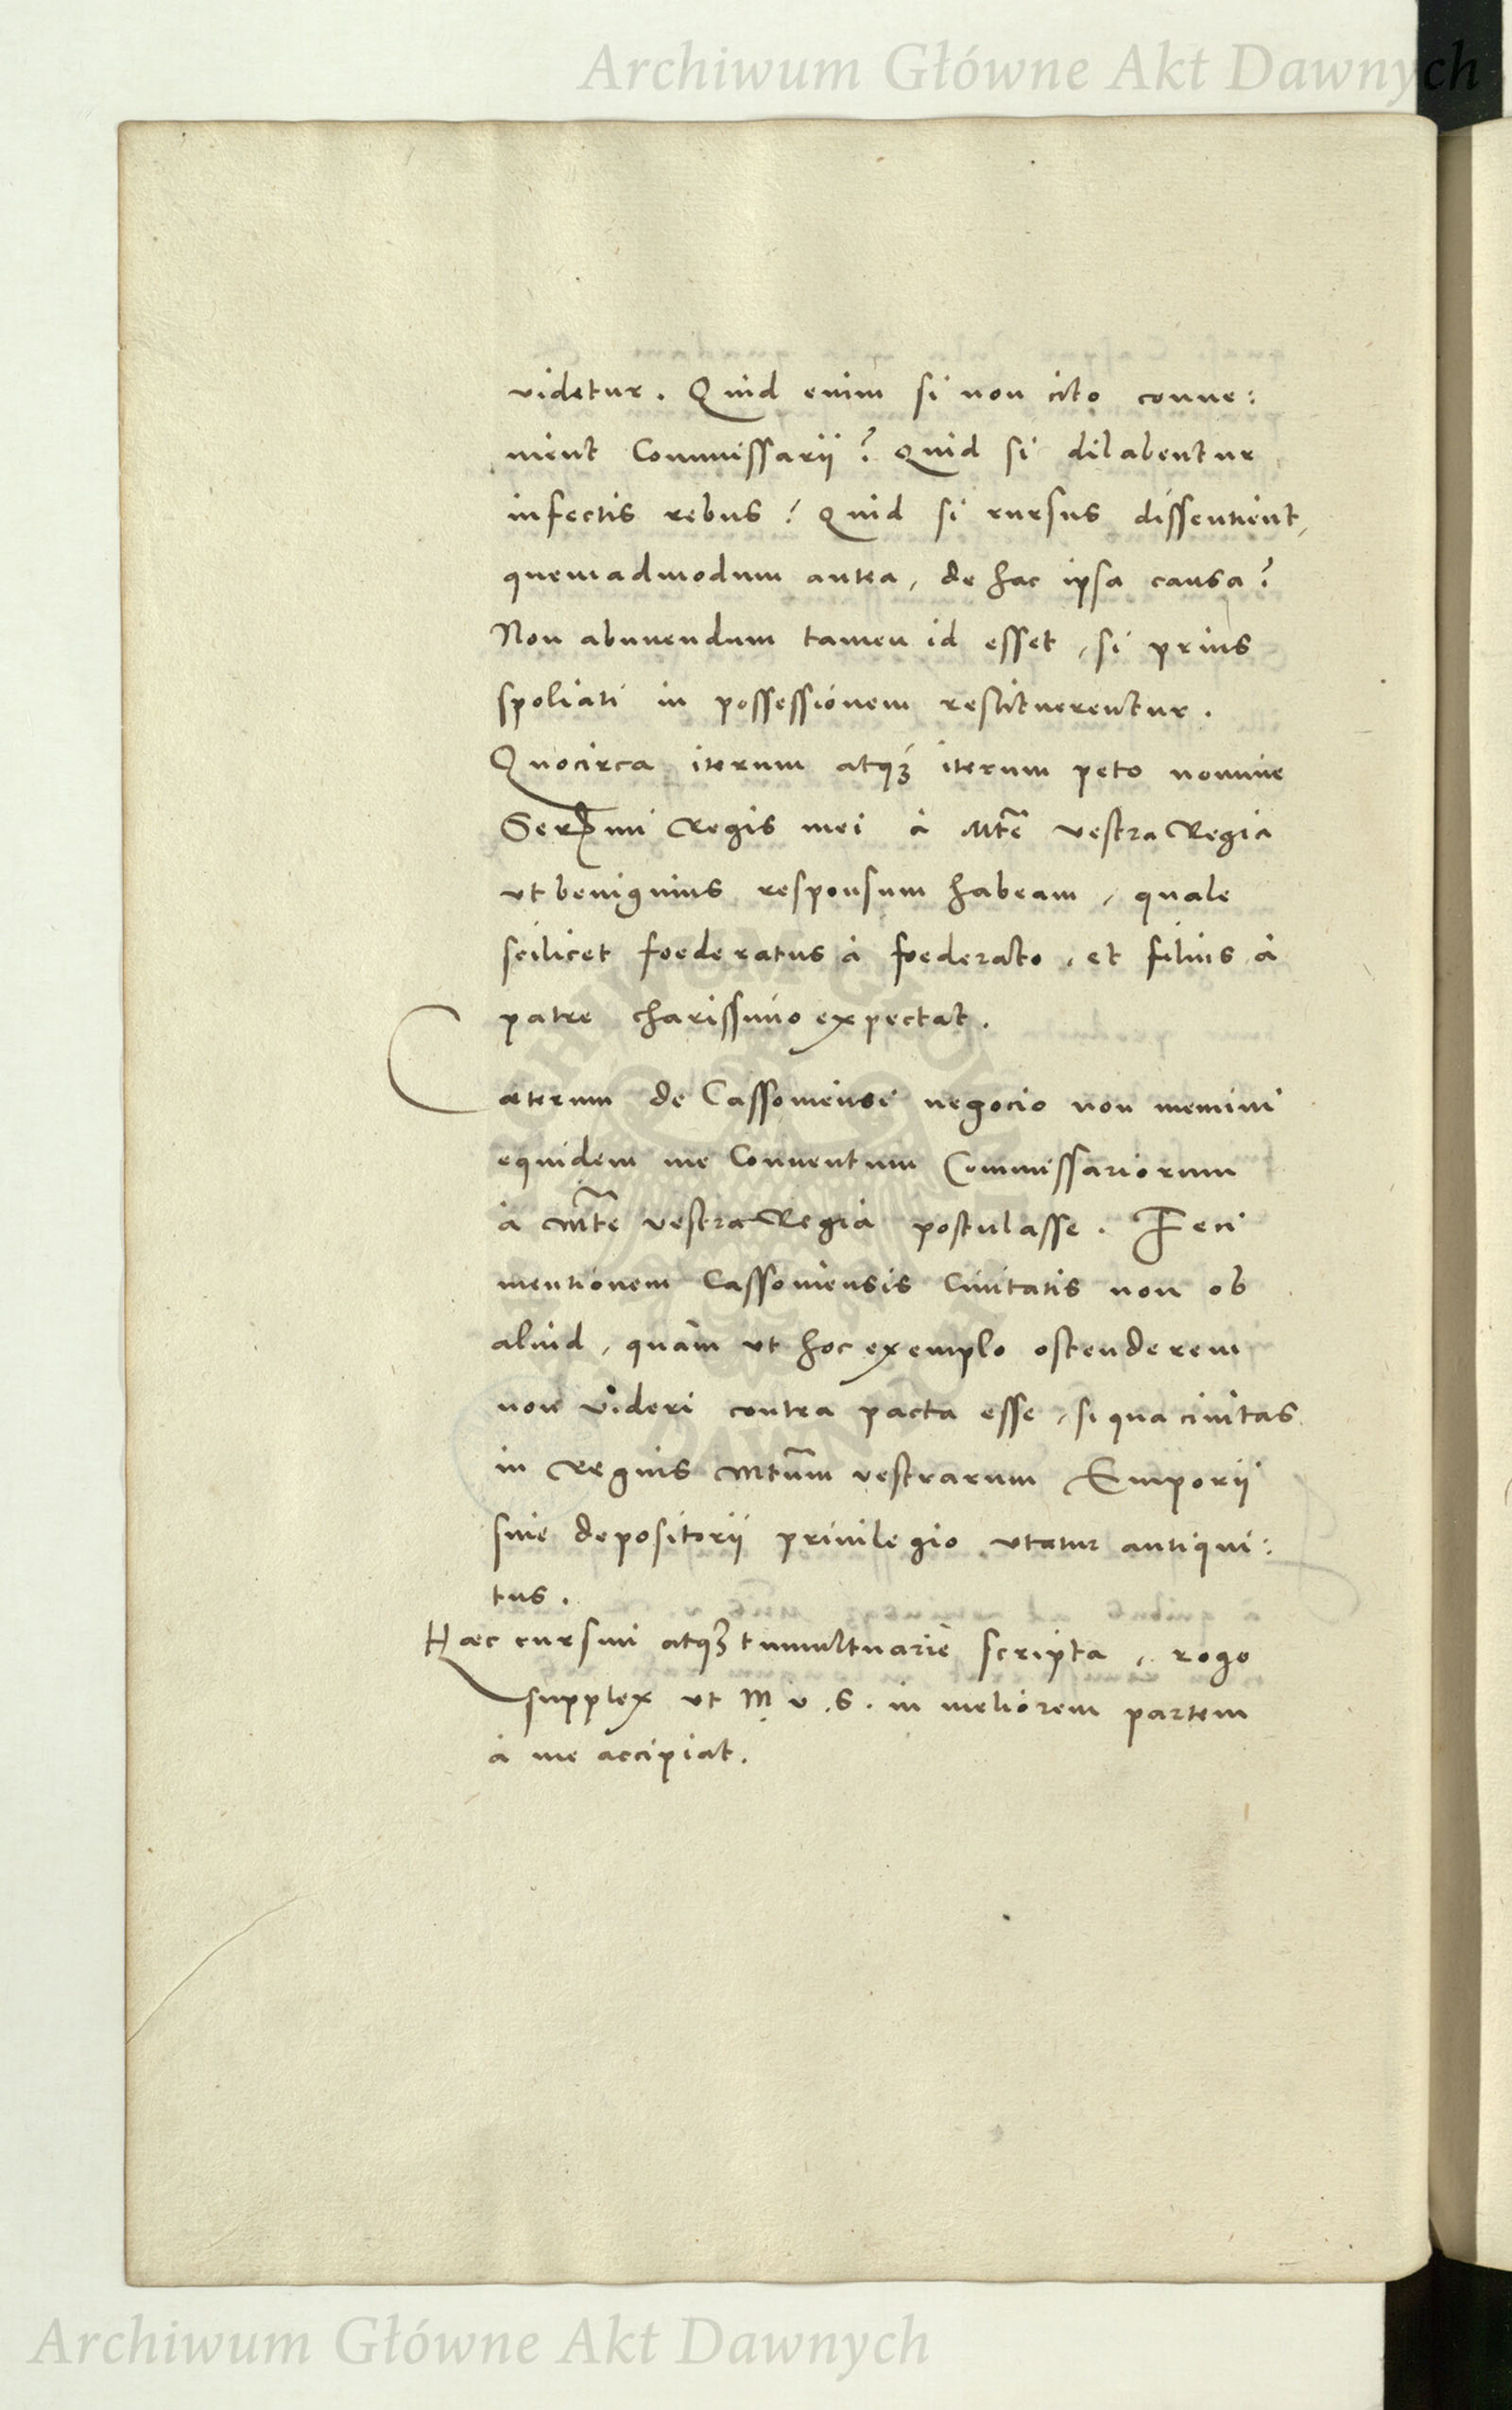 Archiwum Główne Akt Dawnych
videtur. Quid enim si non cito conue:
nient Commissarii? Quid si dilabentur
infectis rebus? Quid si rursus dissentient,
quemadmodum antea, de hac ipsa causa?
Non abnuendum tamen id esset, si prius
spoliati in possessionem restituerentur.
Quocirca iterum atq3 iterum peto nomine
Serᵐi Regis mei à Mte vestra Regia
vt benignius responsum habeam, quale
scilicet foederatus à foederato, et filius à
patre charissimo expectat.
Caeterum de Cassouiensi negocio non memini
equidem me Conuentum Commissariorum
à Mte vestra Regia postulasse. Feci
mentionem Cassouiensis Ciuitatis non ob
aliud, quàm vt hoc exemplo ostenderem
non videri contra pacta esse, si qua ciuitas
in Regnis Mtum vestrarum Emporii
siue depositorii priuilegio vtatur antiqui:
tus.
Haec cursim atq3 tumultuariè scripta, rogo
supplex vt M. v. S. in meliorem partem
à me accipiat.
Archiwum Główne Akt Dawnych